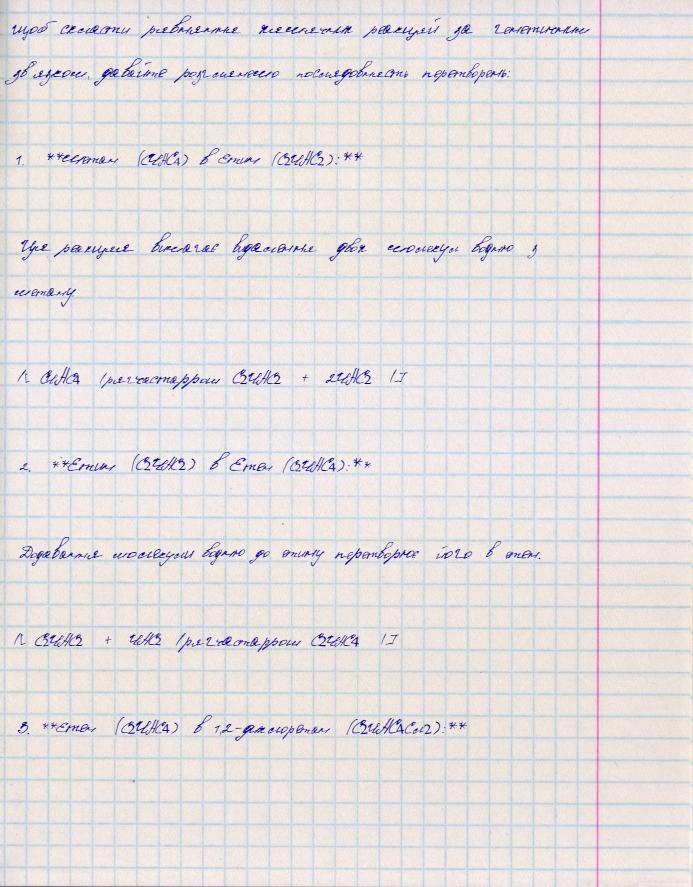 Щоб скласти рівняння хімічних реакцій за генетичним
зв'язком, давайте розглянемо послідовність перетворень:
1. **Метан (CHC4) в Етин (C2HC2):**
Ця реакція вимагає видалення двох молекул водню з
метану
\[ CHC4 \rightarrow C2HC2 + 2HC2 \]
2. **Етин (C2HC2) в Етен (C2HC4):**
Додавання молекули водню до етину перетворює його в етен.
\[ C2HC2 + HC2 C2HC4 \]
3. **Етен (C2HC4) в 1,2-дихлоретан (C2HC4Cl2):**